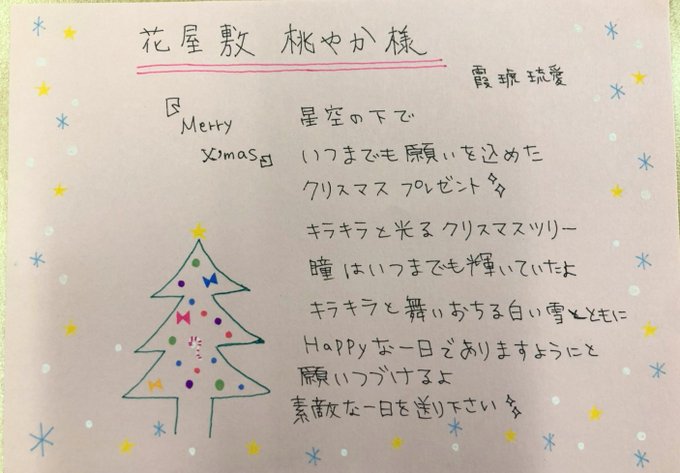 花屋敷 桃やか様
霞琥 琉愛
『Merry
X'mas』
星空の下で
いつまでも願いを込めた
クリスマス プレゼント✨
キラキラと光るクリスマスツリー
瞳はいつまでも輝いていたよ
キラキラと舞いおちる白い雪とともに
Happyな一日でありますようにと
願いつづけるよ
素敵な一日を送り下さい✨